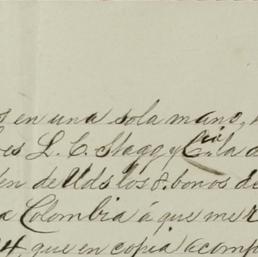 s en una sola mano,
es L. C. Stagg y Cía la
en de Uds los 8. bonos de
a Colombia á que me
4, que en copia acomp